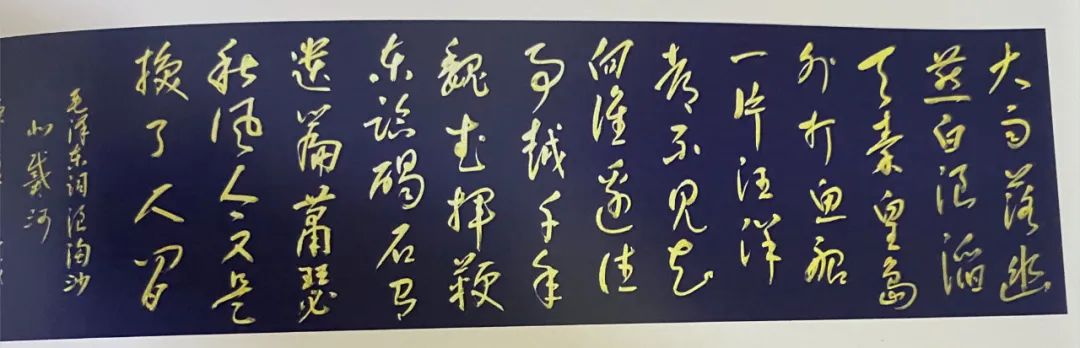 大雨落幽
燕白浪滔
天秦皇岛
外打鱼船
一片汪洋
都不见知
向谁边往
事越千年
魏武挥鞭
东临碣石有
遗篇萧瑟
秋风今又是
换了人间
毛泽东词浪淘沙
北戴河